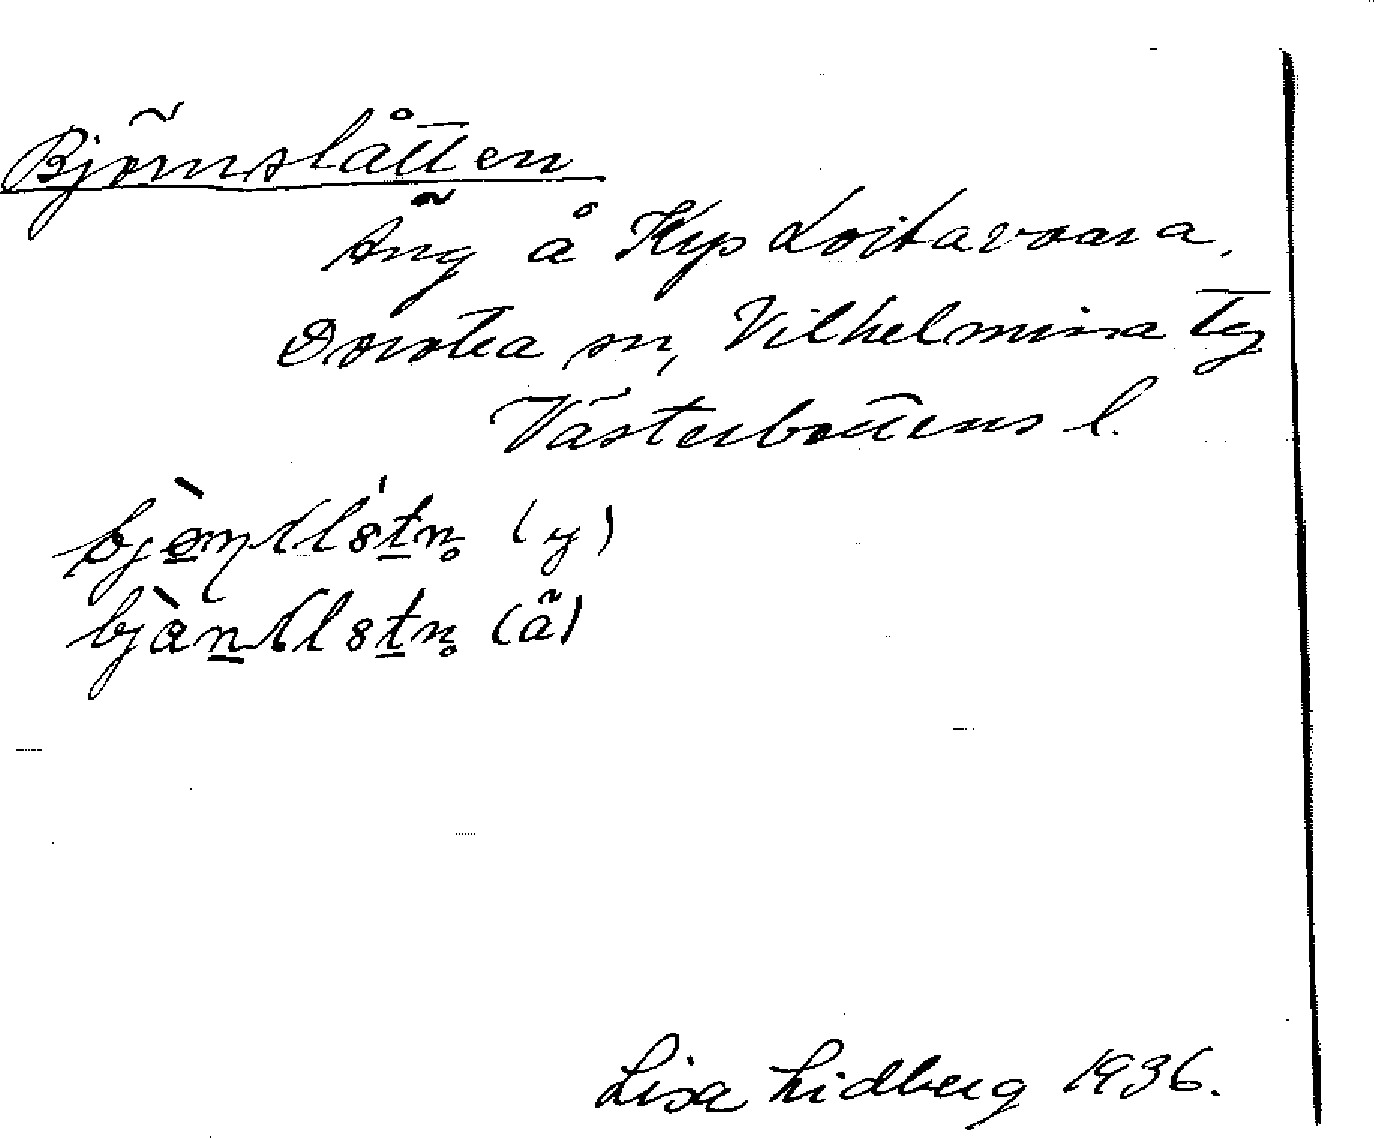 Björnslåtten
Äng å Kyp Loitavaara,
Dorotea sn, Vilhelmina tg
Västerbottens l.
(y)
(ä)
Lisa Lidberg 1936.